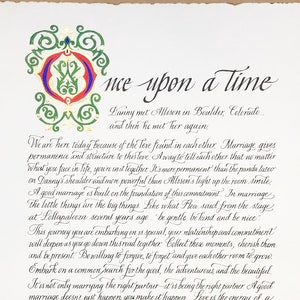 Once upon a Time
Danny met Allison in Boulder, Colorado
and then he met her again.
We are here today because of the love found in each other. Marriage gives
permanence and structure to this love. A way to tell each other that no matter
what you face in life, you're in it together. It's more permanent than the panda tattoo
on Danny's shoulder and more powerful than Allison's light up the room smile.
A good marriage is built on the foundation of this commitment. In marriage,
the little things are the big things. Like what said from the stage
at Lollapalooza several years ago "be gentle, be kind and be nice."
This journey you are embarking on is special, your relationship and commitment
will deepen as you go down this road together. Collect these moments, cherish them
and be present. Be willing to forgive, to forget and give each other room to grow.
Embark on a common search for the good, the adventurous, and the beautiful.
It is not only marrying the right partner - it is being the right partner. A good
marriage doesn't just happen, you make it happen. Love is the energy of a